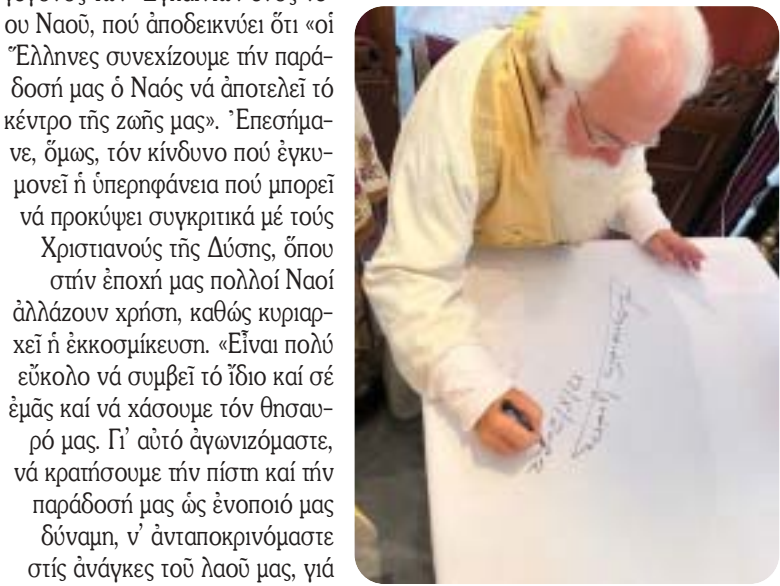 ου Ναοῦ, πού ἀποδεικνύει ὅτι «οἱ
Ἕλληνες συνεχίζουμε τήν παρά-
δοσή μας ὁ Ναός νά ἀποτελεῖ τό
κέντρο τῆς ζωῆς μας». Ἐπεσήμα-
νε, ὅμως, τόν κίνδυνο πού ἐγκυ-
μονεῖ ἡ ὑπερηφάνεια πού μπορεῖ
νά προκύψει συγκριτικά μέ τούς
Χριστιανούς τῆς Δύσης, ὅπου
στήν ἐποχή μας πολλοί Ναοί
ἀλλάζουν χρήση, καθώς κυριαρ-
χεῖ ἡ ἐκκοσμίκευση. «Εἶναι πολύ
εὔκολο νά συμβεῖ τό ἴδιο καί σέ
ἐμᾶς καί νά χάσουμε τόν θησαυ-
ρό μας. Γι’ αὐτό ἀγωνιζόμαστε,
νά κρατήσουμε τήν πίστη καί τήν
παράδοσή μας ὡς ἑνοποιό μας
δύναμη, ν’ ἀνταποκρινόμαστε
στίς ἀνάγκες τοῦ λαοῦ μας, γιά